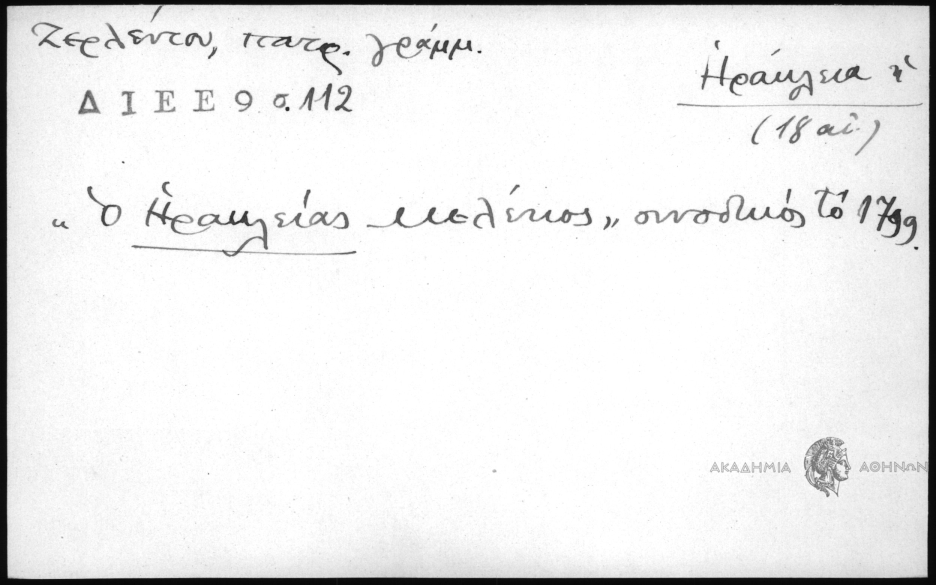 Ζερλέντου, πατρ. γράμμ.
ΔΙΕΕ 9 σ. 112
Ἡράκλεια ἡ
(18 αἰ.)
„ Ὁ Ἡρακλείας Μελέτιος „ συνοδικός τό 1799.
ΑΚΑΔΗΜΙΑ ΑΘΗΝΩΝ